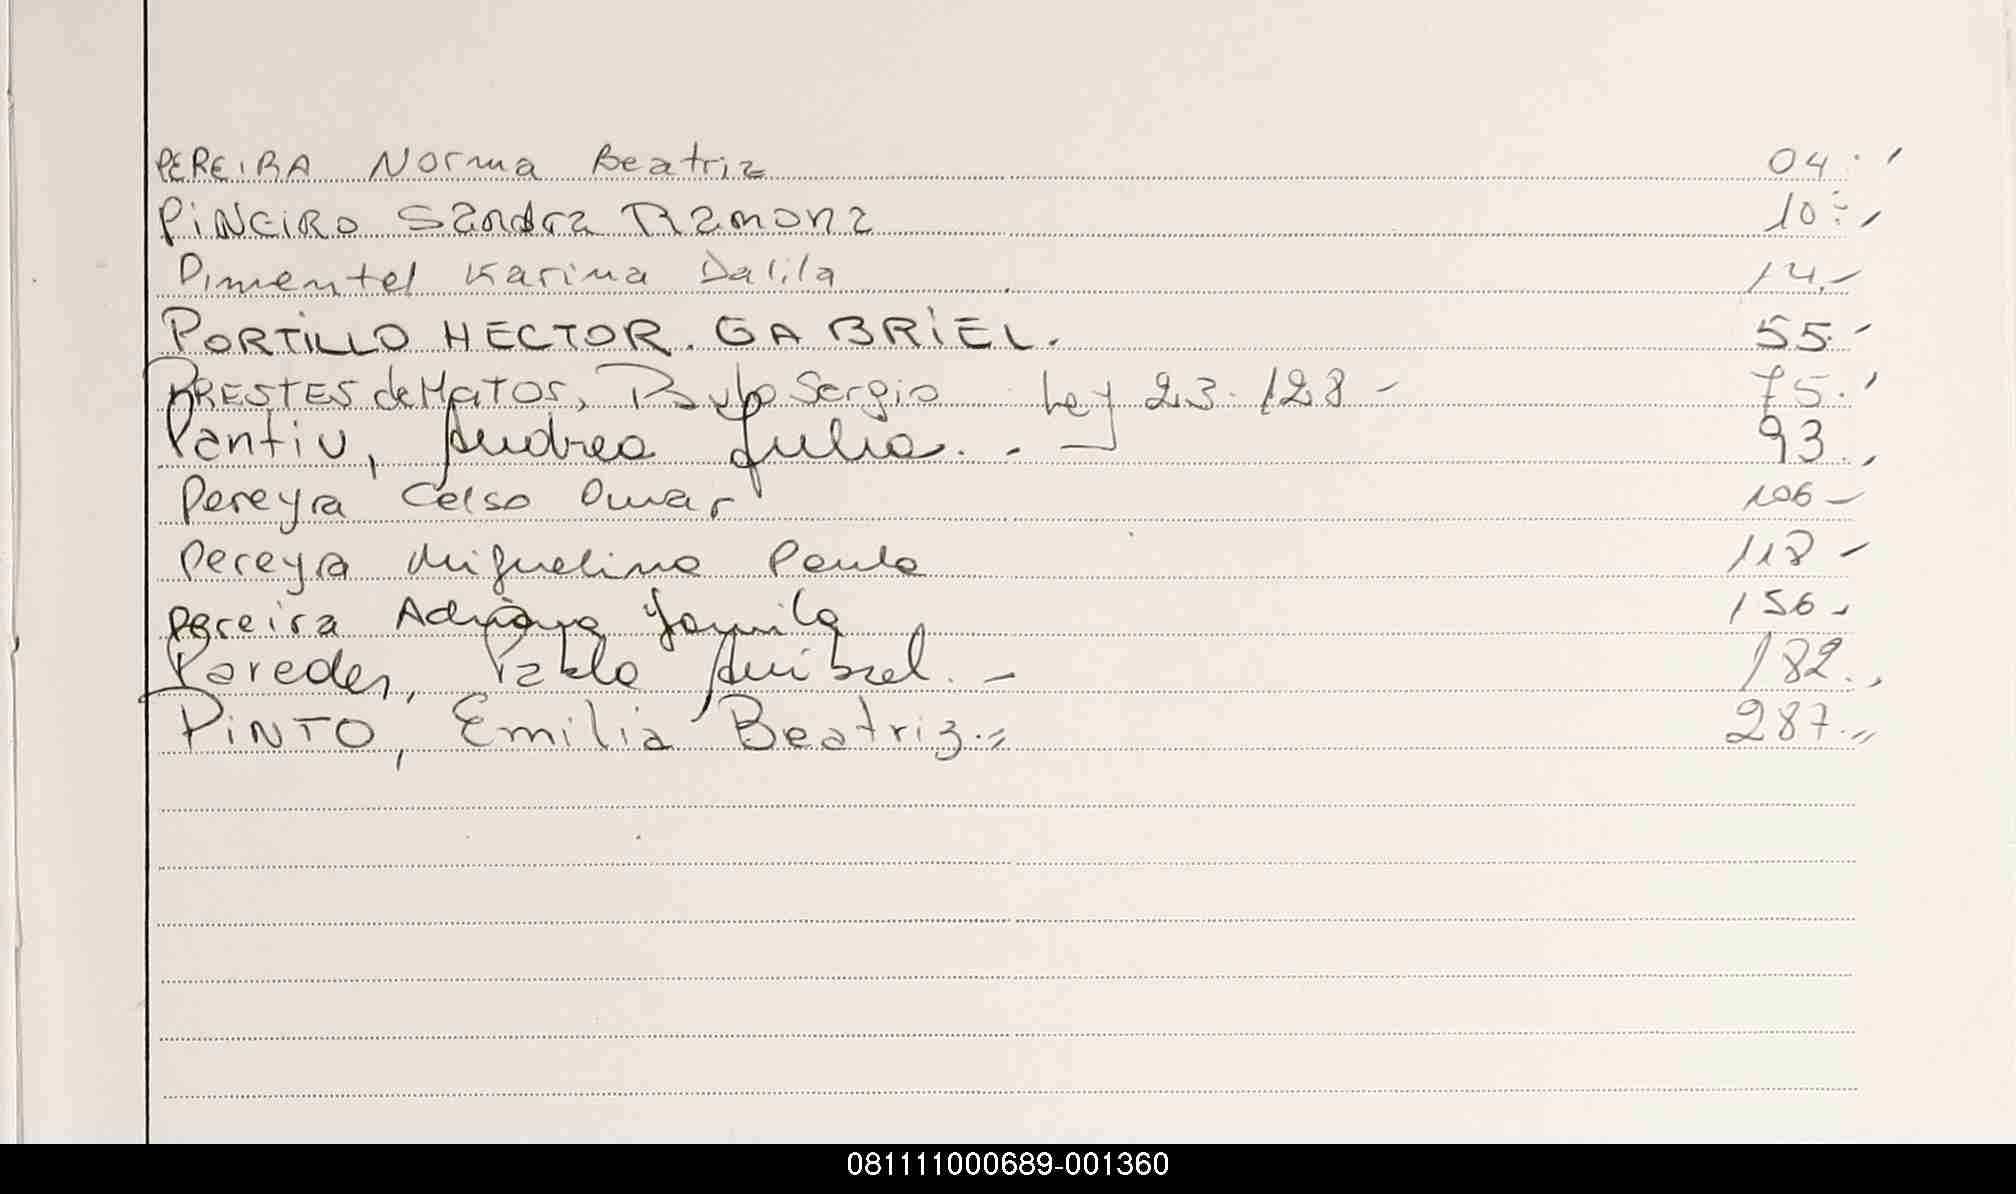 PEREIRA Norma Beatriz 04.-
PiNEiRO Sandra Ramona 10.-
Pimentel Karina Dalila 14.-
PORTILLO HECTOR. GABRIEL. 55.-
PRESTES de MATOS, Paulo Sergio Ley 23.128 - 75.-
Pantiu, Andrea Julia.- 93.-
Pereyra Celso Omar 106-
Pereyra Miguelina Paula 118-
Pereira Adriana Yamila 156.
Paredes, Pablo Anibal.- 182.-
PiNTO, Emilia Beatriz.= 287.=
081111000689-001360